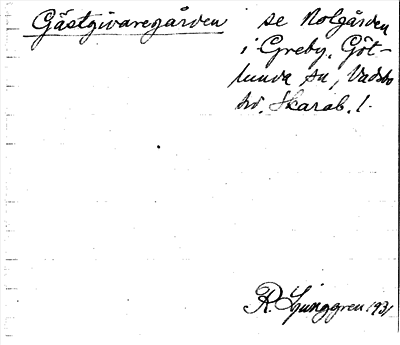 Gästgivaregården se Nolgården
i Greby, Göt-
lunda sn, Vadsbo
hd. Skarab. l.
R. Ljunggren 1931